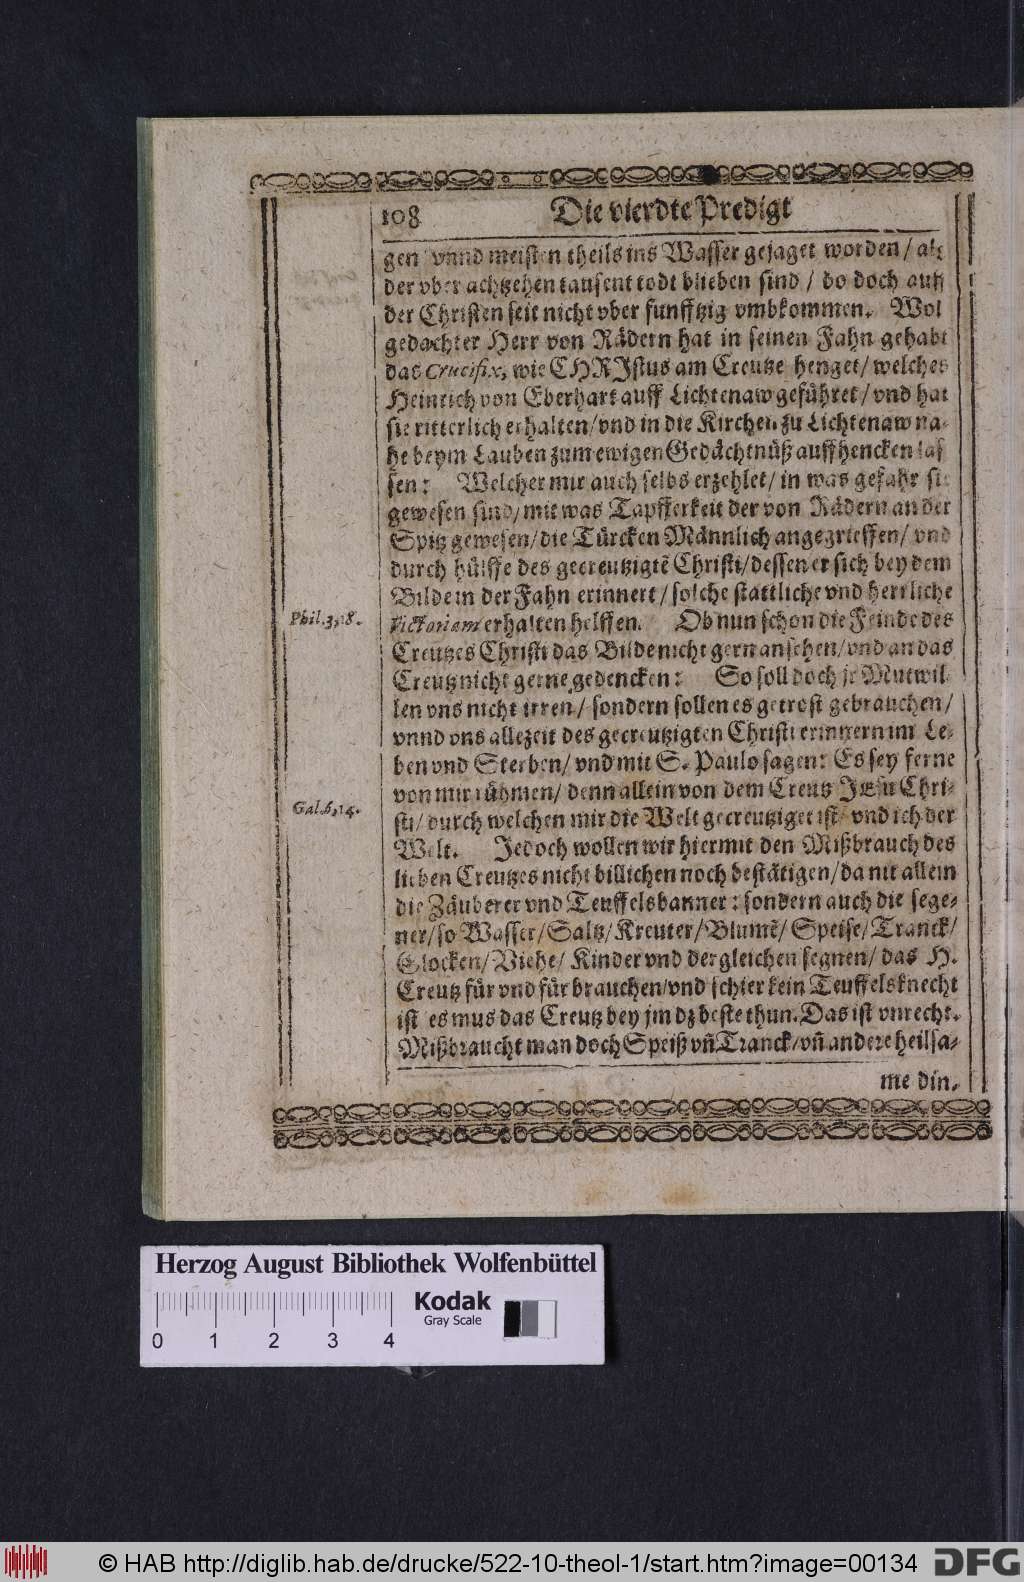 108 Die vierdte Predigt
gen vnnd meisten theils ins Wasser gejaget worden / al⸗
der vber achtzehen tausent todt blieben sind / do doch auff
der Christen seit nicht vber funfftzig vmbkommen. Wol
gedachter Herr von Rädern hat in seinen Fahn gehabt
das Crucifix, wie CHRIstus am Creutze henget / welches
Heinrich von Eberhart auff Lichtenaw geführet / vnd hat
sie ritterlich erhalten / vnd in die Kirchen zu Lichtenaw na⸗
he beym Lauben zum ewigen Gedächtnüß auffhencken las
sen: Welcher mir auch selbs erzehlet / in was gefahr sie
gewesen sind / mit was Tapfferkeit der von Rädern an der
Spitz gewesen / die Türcken Männlich angegrieffen / vnd
durch hülffe des gecreutzigtē Christi / dessen er sich bey dem
Bilde in der Fahn erinnert / solche stattliche vnd herrliche
Phil.3,18. Victoriam erhalten helffen. Ob nun schon die Feinde des
Creutzes Christi das Bilde nicht gern ansehen / vnd an das
Creutz nicht gerne gedencken: So soll doch jr Mutwil⸗
len vns nicht irren / sondern sollen es getrost gebrauchen /
vnnd vns allezeit des gecreutzigten Christi erinnern im Le⸗
ben vnd Sterben / vnd mit S. Paulo sagen: Es sey ferne
Gal.6,14. von mir rühmen / denn allein von dem Creutz JEsu Chri⸗
sti / durch welchen mir die Welt gecreutziget ist / vnd ich der
Welt. Jedoch wollen wir hiermit den Mißbrauch des
lieben Creutzes nicht billichen noch bestätigen / da nit allein
die Zäuberer vnd Teuffelsbanner: sondern auch die sege⸗
ner / so Wasser / Saltz / Kreuter / Blumē / Speise / Tranck /
Glocken / Viehe / Kinder vnd dergleichen segnen / das H.
Creutz für vnd für brauchen / vnd schier kein Teuffelsknecht
ist es mus das Creutz bey jm dz beste thun. Das ist vnrecht.
Mißbraucht man doch Speiß vn̄ Tranck / vn̄ andere heilsa⸗
me din.
Herzog August Bibliothek Wolfenbüttel
0 1 2 3 4
Kodak
Gray Scale
© HAB http://diglib.hab.de/drucke/522-10-theol-1/start.htm?image=00134
DFG